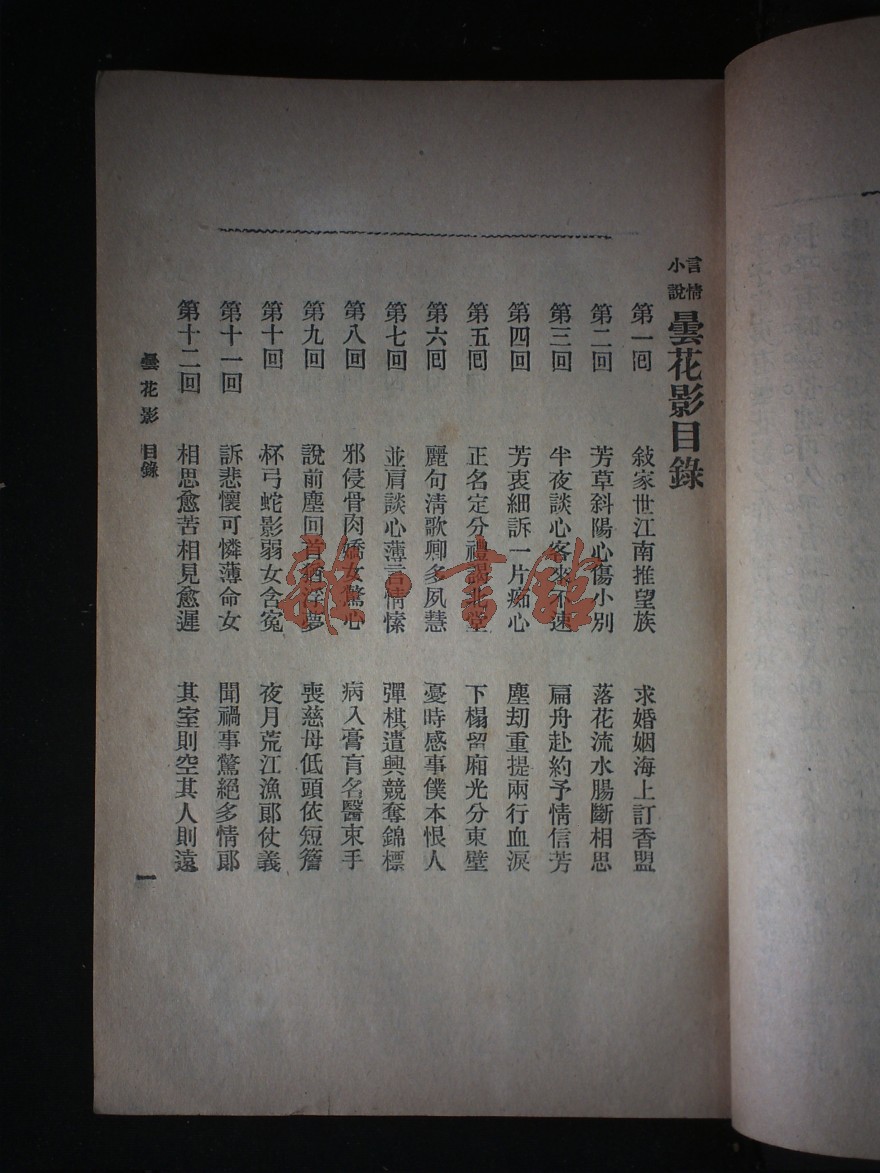 言情小說 曇花影目錄
第一囘 敍家世江南推望族 求婚姻海上訂香盟
第二回 芳草斜陽心傷小別 落花流水腸斷相思
第三回 半夜談心客來不速 扁舟赴約予情信芳
第四回 芳衷細訴一片痴心 塵刧重提兩行血淚
第五囘 正名定分禮謁北堂 下榻留廂光分東壁
第六囘 麗句淸歌卿多夙慧 憂時感事僕本恨人
第七回 並肩談心薄言情愫 彈棋遣興競奪錦標
第八回 邪侵骨肉嬌女驚心 病入膏肓名醫束手
第九回 說前塵回首猶浮夢 喪慈母低頭依短簷
第十回 杯弓蛇影弱女含冤 夜月荒江漁郞仗義
第十一回 訴悲懷可憐薄命女 聞禍事驚絕多情郞
第十二回 相思愈苦相見愈遲 其室則空其人則遠
曇花影 目錄
一
雜·書館